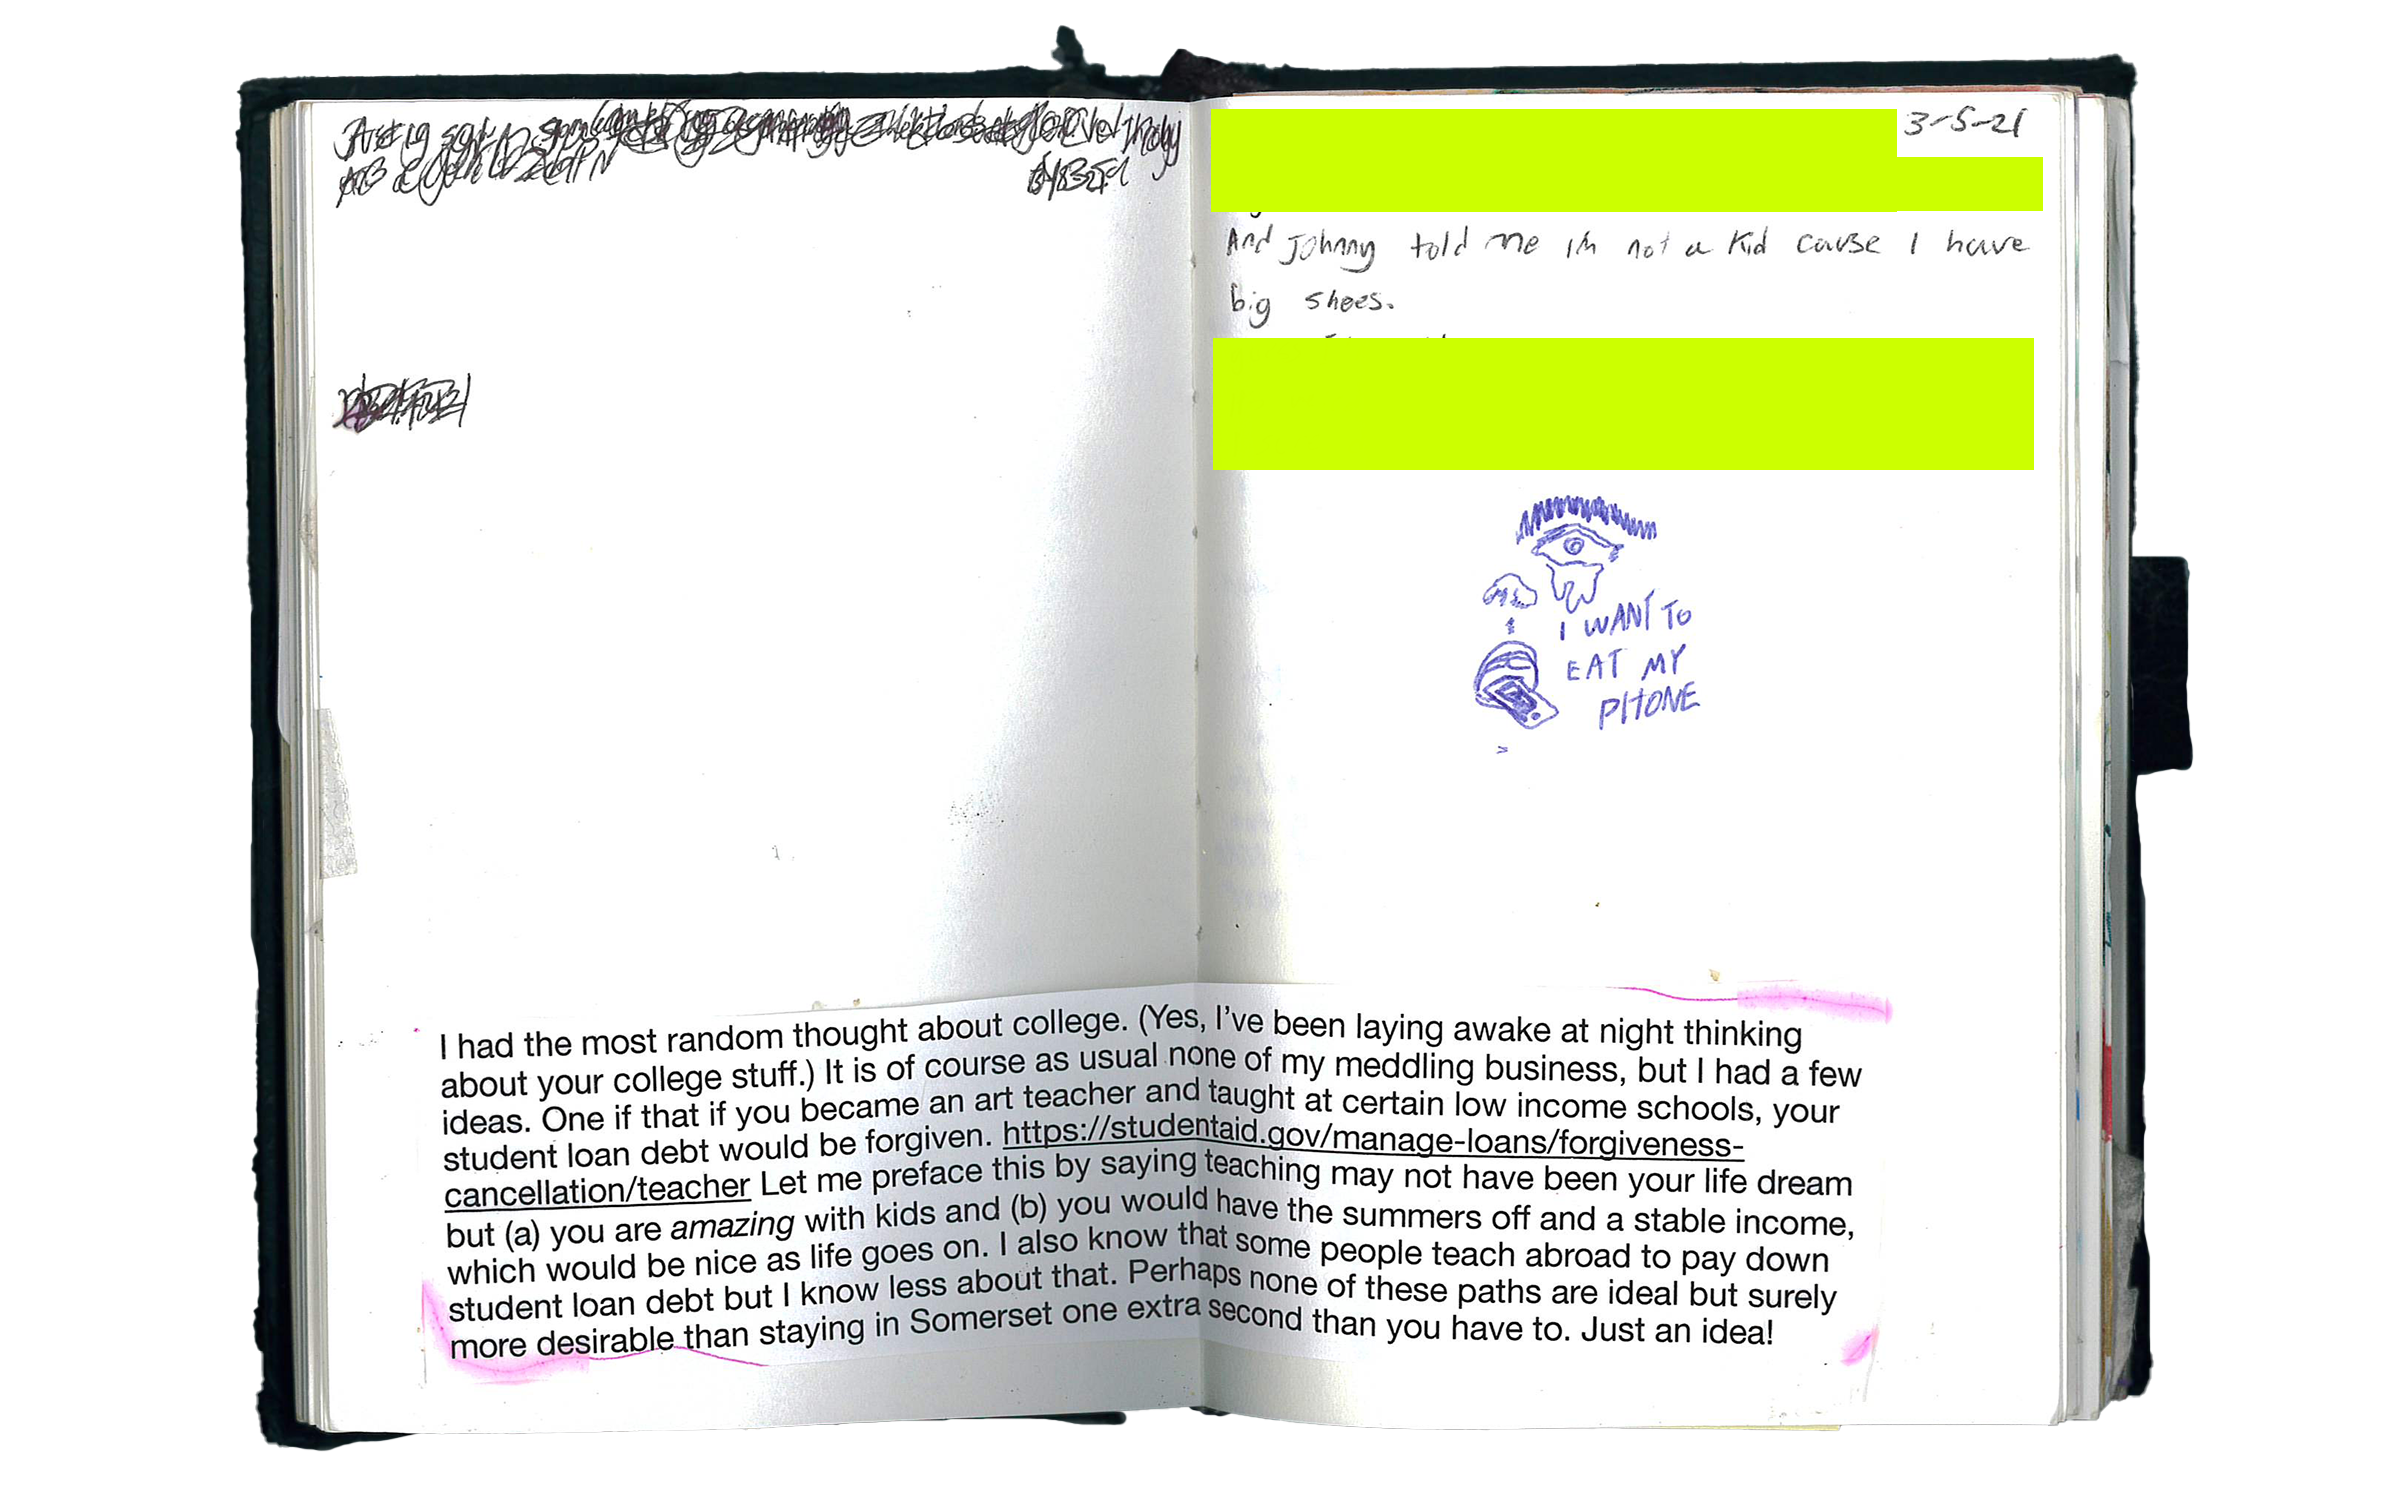 3-5-21
And Johnny told me im not a kid cause I have
big shoes.
I WANT TO
EAT MY
PHONE
I had the most random thought about college. (Yes, I've been laying awake at night thinking
about your college stuff.) It is of course as usual none of my meddling business, but I had a few
ideas. One if that if you became an art teacher and taught at certain low income schools, your
student loan debt would be forgiven. https://studentaid.gov/manage-loans/forgiveness-
cancellation/teacher Let me preface this by saying teaching may not have been your life dream
but (a) you are amazing with kids and (b) you would have the summers off and a stable income,
which would be nice as life goes on. I also know that some people teach abroad to pay down
student loan debt but I know less about that. Perhaps none of these paths are ideal but surely
more desirable than staying in Somerset one extra second than you have to. Just an idea!